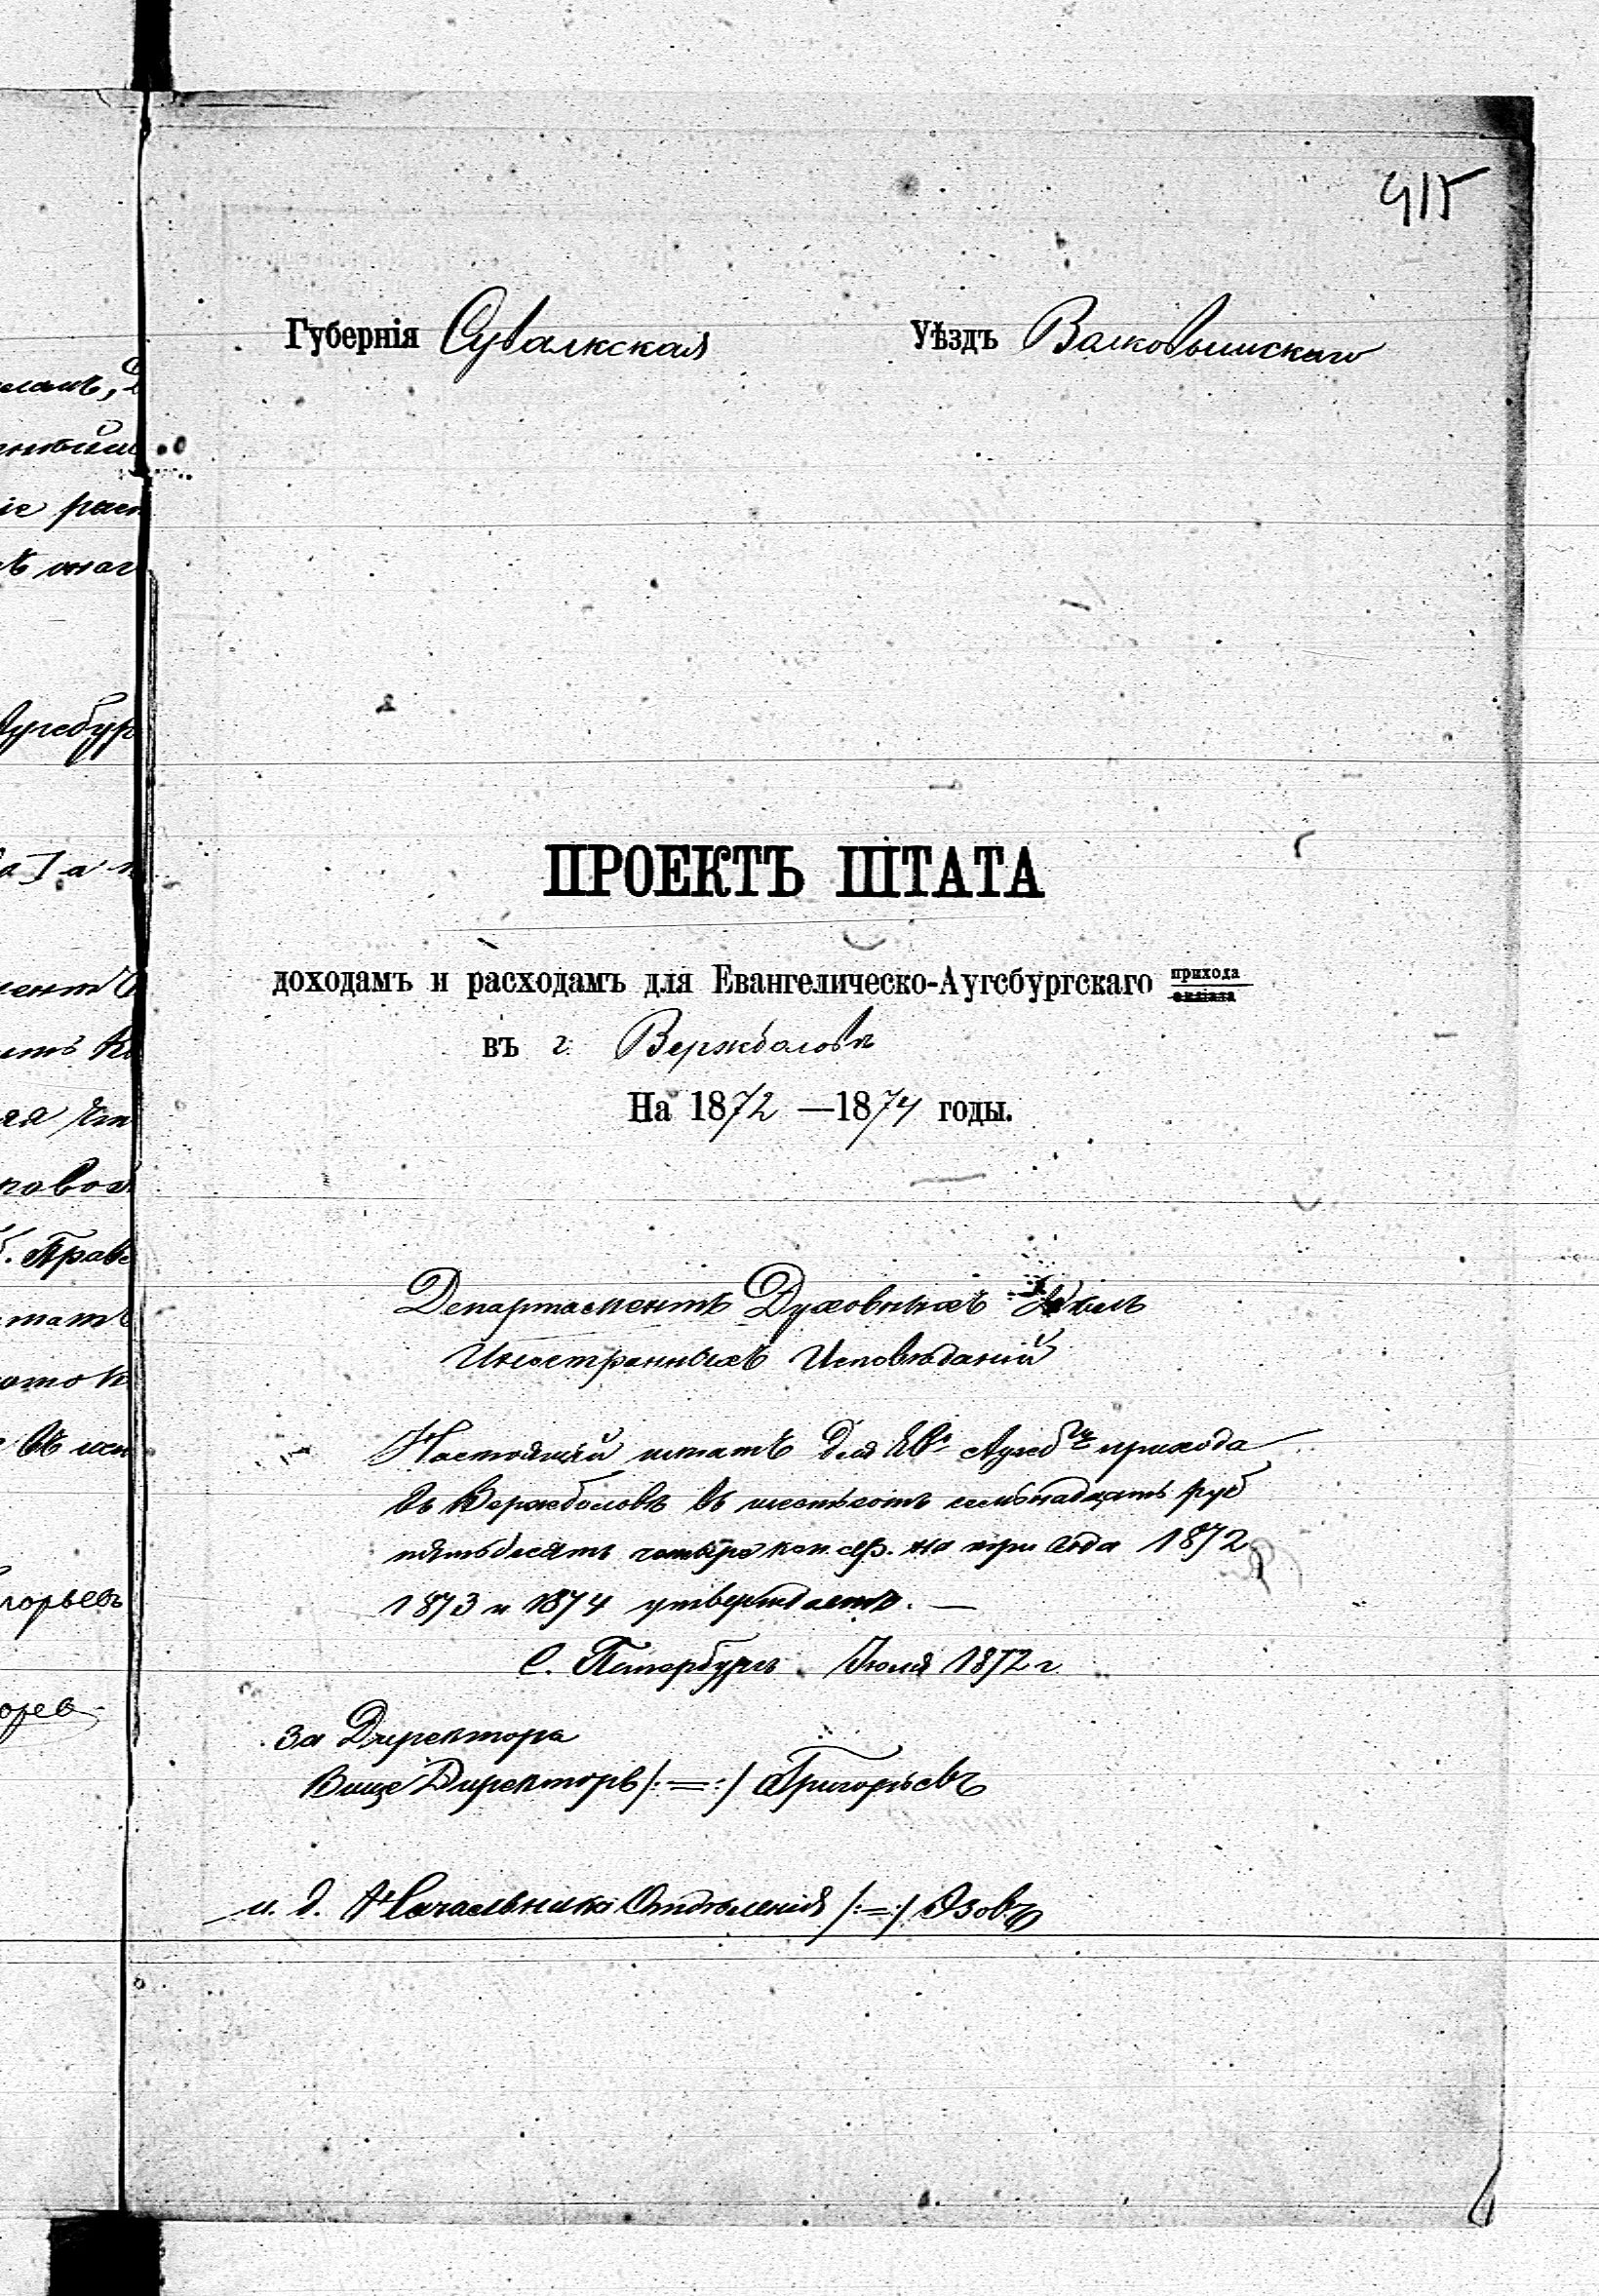 415
Губернія Сувалкская Уѣздъ Волковышскаго
ПРОЕКТЪ ШТАТА
доходамъ и расходамъ для Евангелическо-Аугсбургскаго прихода
филіала
въ г. Вержболовѣ
На 1872 —1874 годы.
Департаментъ Духовныхъ Дѣлъ
Иностранныхъ Исповѣданій
Настоящій штатъ для Ев. Аугсбг прихода
въ Вержболовѣ въ шестьсотъ семьнадцать руб
пятьдесятъ четыре коп. сер. на три года 1872
1873 и 1874 утверждаетъ. —
С. Петербургъ Іюля 1872 г
За Директора
Вице Директоръ /:=:/ Григорьевъ
и. д. Начальника Отдѣленія /:=:/ Азовъ